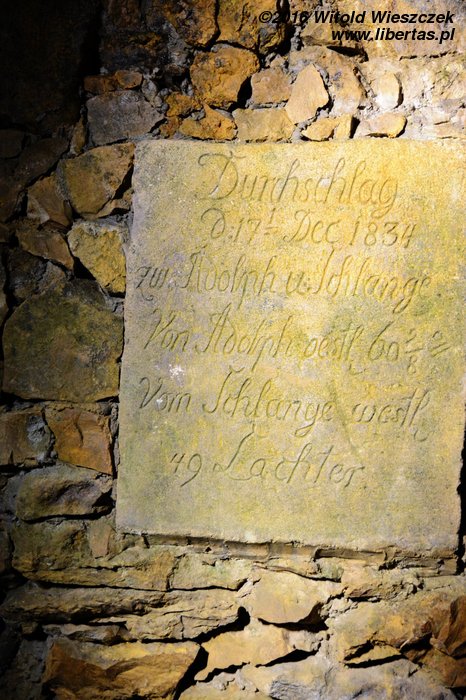 ©2016 Witold Wieszczek
www.libertas.pl
Durchschlag
D: 17t Dec 1834
zw. Adolph u. Schlange
Von Adolph oestl. 60 2/8
Vom Schlange westl.
49 Lachter.